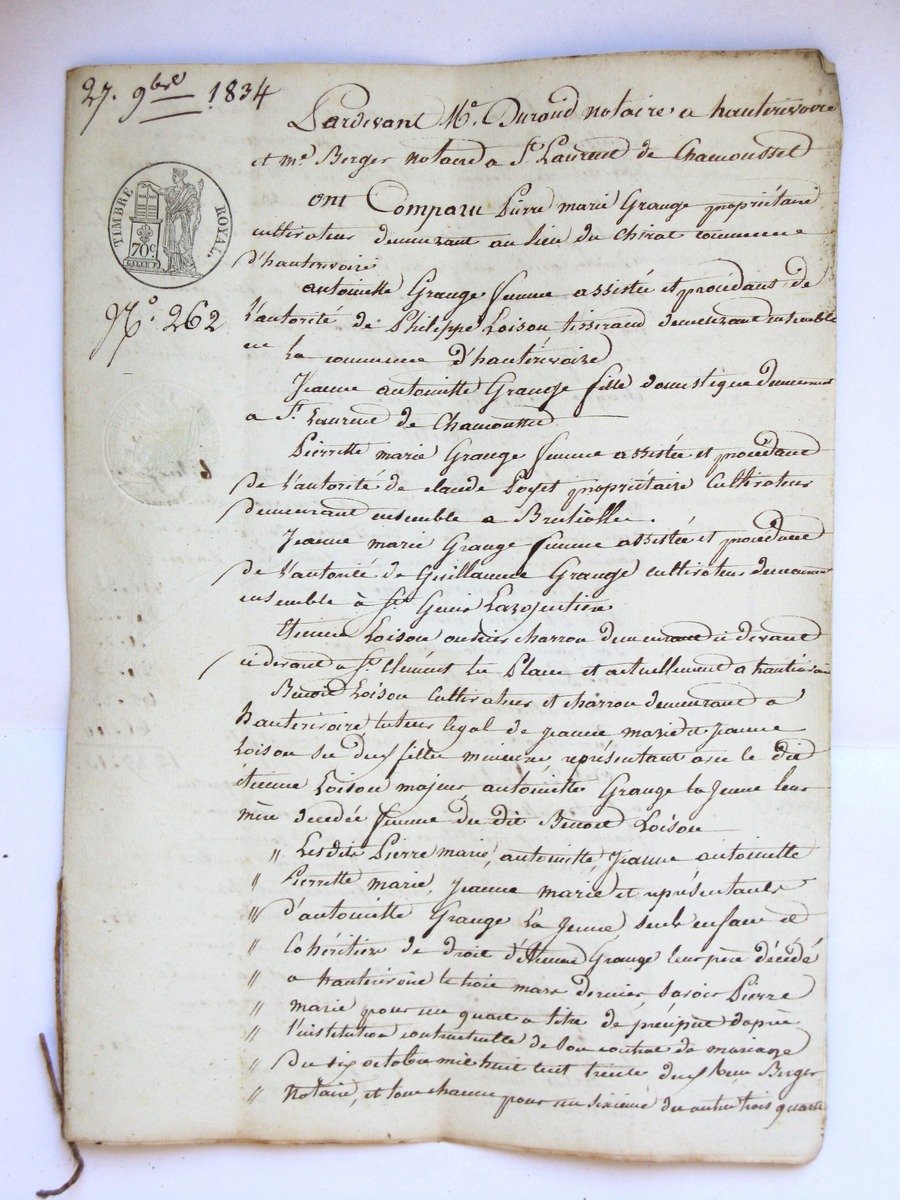 27. 9bre 1834
TIMBRE ROYAL.
70c
N.o 262
Pardevant Me. Duroud notaire a hauterivoire
et me Berger notaire a St Laurent de Chamousset
ont Comparu Pierre marie Grange propriétaire
cultivateur demeurant au lieu du Chirat commune
d'hauterivoire
antoinette Grange femme assistée et procédant de
l'autorité de Philippe Loison tisserand demeurant ensemble
en la commune d'hauterivoire
Jeanne antoinette Grange fille domestique demeurant
a St Laurent de Chamousset
Pierrette marie Grange femme assistée et procédant
de l'autorité de claude Loyet propriétaire Cultivateur
demeurant ensemble a Brulliolle.
Jeanne marie Grange femme assistée et procédant
de l'autorité de Guillaume Grange cultivateur demeurant
ensemble à St Genis Largentière
Etienne Loison ouvrier charron demeurant ci devant
ci devant a St Clément les Places et actuellement a hauterivoire
Benoit Loison Cultivateur et charron demeurant a
hauterivoire tuteur légal de jeanne marie et jeanne
Loison ses deux filles mineures, représentant avec le dit
étienne Loison majeur, antoinette Grange la jeune leur
mère decedée femme du dit Benoit Loison
" Lesdits Pierre marie, antoinette, Jeanne antoinette
" Pierrette marie, Jeanne marie et représentants
" d'antoinette Grange La Jeune, seuls enfans et
" Cohéritiers de droit d'Etienne Grange leur père décédé
" a hauterivoire le trois mars dernier, savoir Pierre
" marie pour un quart a titre de préciput daprès
" l'institution contractuelle de son contrat de mariage
" du six octobre mil huit cent trente deux reçu Berger
" Notaire, et tous chacun pour un sixième des autres trois quarts